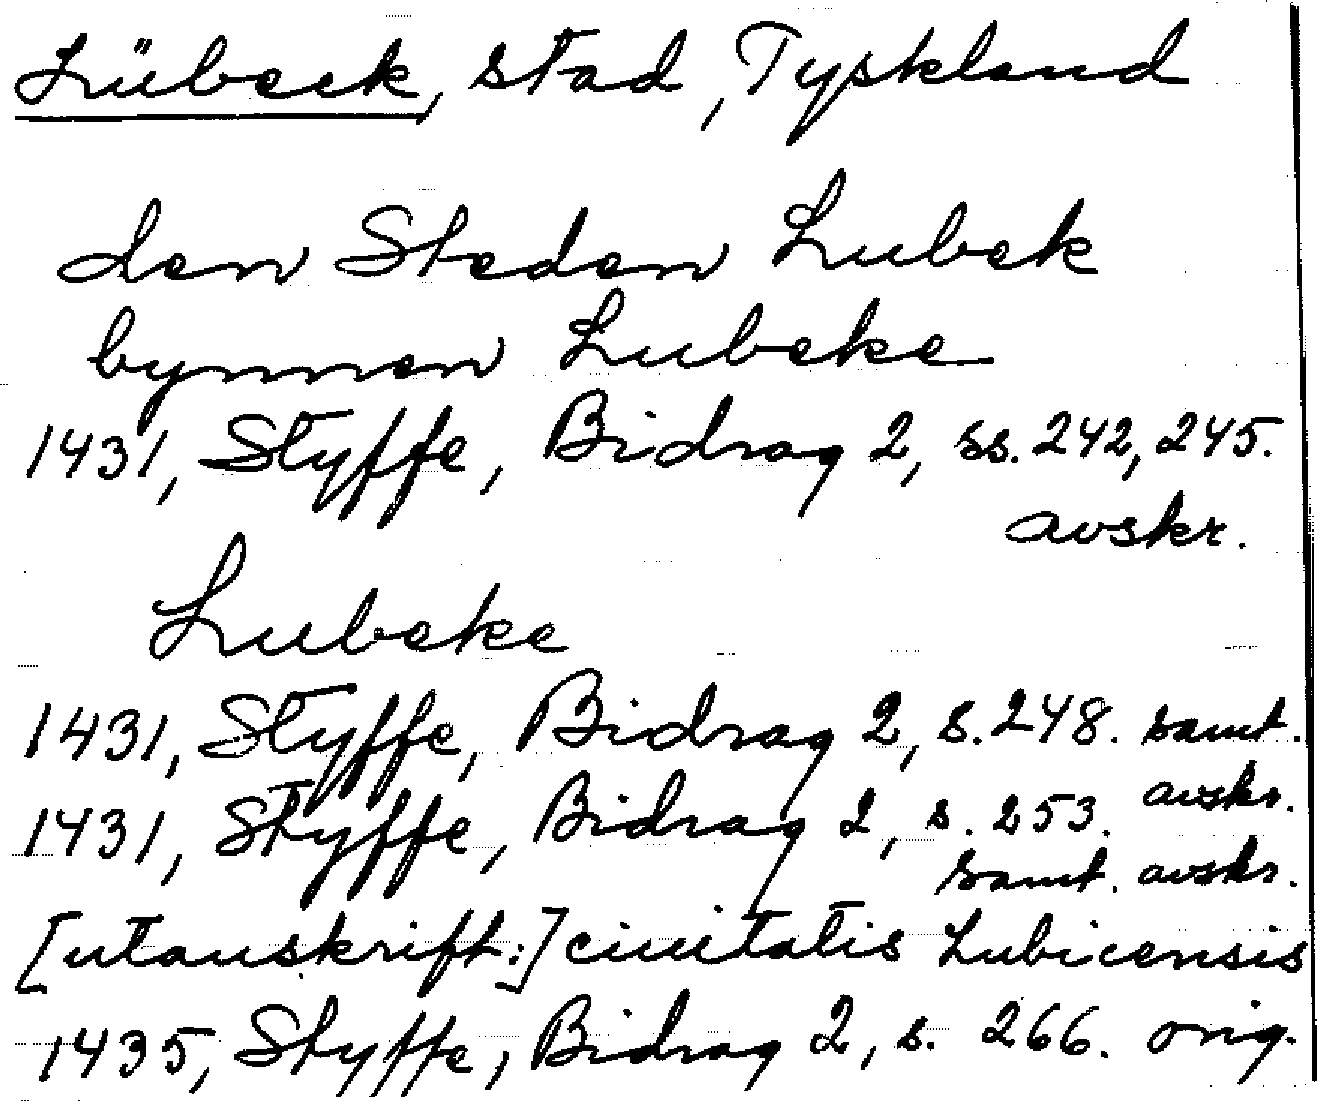 Lübeck, stad, Tyskland
den Steden Lubek
bynnen Lubeke
1431, Styffe, Bidrag 2, ss. 242, 245.
avskr.
Lubeke
1431, Styffe, Bidrag 2, s. 248. samt.
avskr.
1431, Styffe, Bidrag 2, s. 253.
samt. avskr.
[utanskrift:] ciuitatis Lubicensis
1435, Styffe, Bidrag 2, s. 266. orig.